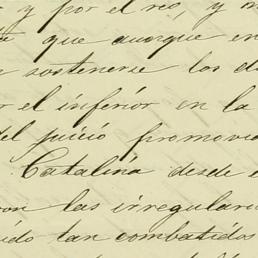 y por el reo, y m
que aunque en
sostenerse los d
r el inferior en la
del juicio promovid
Catalina desde e
ron las irregulari
ido tan combatidos